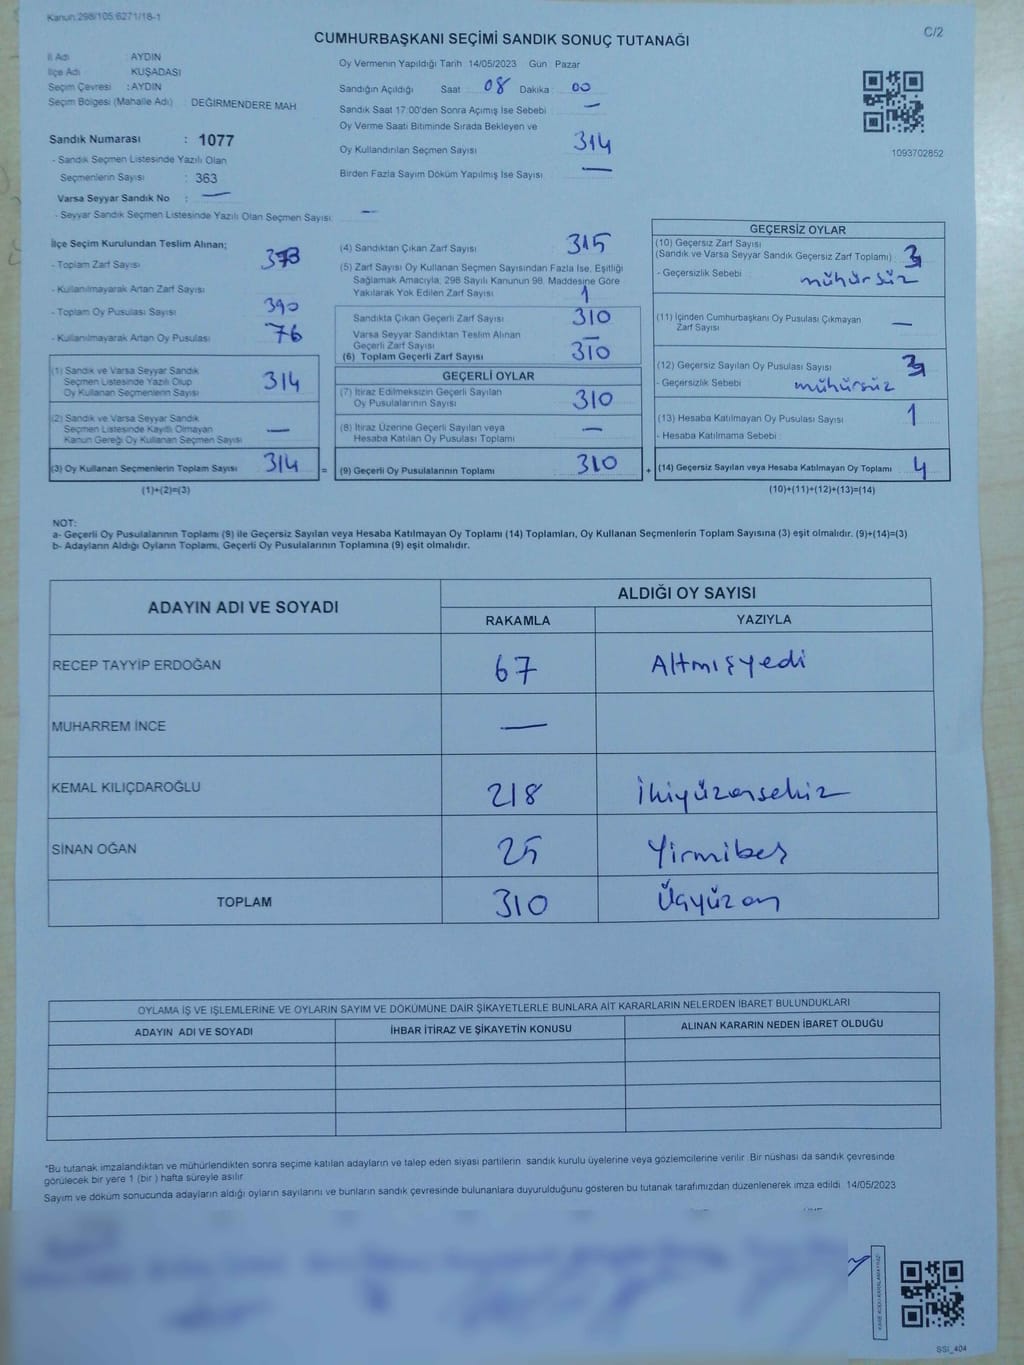 Kanun:298/105.6271/18-1
C/2
CUMHURBAŞKANI SEÇİMİ SANDIK SONUÇ TUTANAĞI
İl Adı : AYDIN
İlçe Adı : KUŞADASI
Seçim Çevresi : AYDIN
Seçim Bölgesi (Mahalle Adı) : DEĞİRMENDERE MAH
Sandık Numarası : 1077
- Sandık Seçmen Listesinde Yazılı Olan
Seçmenlerin Sayısı : 363
Varsa Seyyar Sandık No : —
- Seyyar Sandık Seçmen Listesinde Yazılı Olan Seçmen Sayısı: —
Oy Vermenin Yapıldığı Tarih 14/05/2023 Gün Pazar
Sandığın Açıldığı Saat 08 Dakika 00
Sandık Saat 17:00'den Sonra Açımış İse Sebebi —
Oy Verme Saati Bitiminde Sırada Bekleyen ve
Oy Kullandırılan Seçmen Sayısı 314
Birden Fazla Sayım Döküm Yapılmış İse Sayısı —
1093702852
İlçe Seçim Kurulundan Teslim Alınan;
- Toplam Zarf Sayısı
- Kullanılmayarak Artan Zarf Sayısı
- Toplam Oy Pusulası Sayısı 390
- Kullanılmayarak Artan Oy Pusulası 76
(1) Sandık ve Varsa Seyyar Sandık
Seçmen Listesinde Yazılı Olup
Oy Kullanan Seçmenlerin Sayısı 314
(2) Sandık ve Varsa Seyyar Sandık
Seçmen Listesinde Kayıtlı Olmayan
Kanun Gereği Oy Kullanan Seçmen Sayısı —
(3) Oy Kullanan Seçmenlerin Toplam Sayısı 314 =
(1)+(2)=(3)
(4) Sandıktan Çıkan Zarf Sayısı 315
(5) Zarf Sayısı Oy Kullanan Seçmen Sayısından Fazla İse, Eşitliği
Sağlamak Amacıyla, 298 Sayılı Kanunun 98. Maddesine Göre
Yakılarak Yok Edilen Zarf Sayısı 1
Sandıkta Çıkan Geçerli Zarf Sayısı 310
Varsa Seyyar Sandıktan Teslim Alınan
Geçerli Zarf Sayısı —
(6) Toplam Geçerli Zarf Sayısı 310
GEÇERLİ OYLAR
(7) İtiraz Edilmeksizin Geçerli Sayılan
Oy Pusulalarının Sayısı 310
(8) İtiraz Üzerine Geçerli Sayılan veya
Hesaba Katılan Oy Pusulası Toplamı —
(9) Geçerli Oy Pusulalarının Toplamı 310 +
GEÇERSİZ OYLAR
(10) Geçersiz Zarf Sayısı
(Sandık ve Varsa Seyyar Sandık Geçersiz Zarf Toplamı) 3
- Geçersizlik Sebebi mühürsüz
(11) İçinden Cumhurbaşkanı Oy Pusulası Çıkmayan
Zarf Sayısı —
(12) Geçersiz Sayılan Oy Pusulası Sayısı 3
- Geçersizlik Sebebi mühürsüz
(13) Hesaba Katılmayan Oy Pusulası Sayısı 1
- Hesaba Katılmama Sebebi
(14) Geçersiz Sayılan veya Hesaba Katılmayan Oy Toplamı 4
(10)+(11)+(12)+(13)=(14)
NOT:
a- Geçerli Oy Pusulalarının Toplamı (9) ile Geçersiz Sayılan veya Hesaba Katılmayan Oy Toplamı (14) Toplamları, Oy Kullanan Seçmenlerin Toplam Sayısına (3) eşit olmalıdır. (9)+(14)=(3)
b- Adayların Aldığı Oyların Toplamı, Geçerli Oy Pusulalarının Toplamına (9) eşit olmalıdır.
ADAYIN ADI VE SOYADI ALDIĞI OY SAYISI
RAKAMLA YAZIYLA
RECEP TAYYİP ERDOĞAN 67 Altmışyedi
MUHARREM İNCE —
KEMAL KILIÇDAROĞLU 218 İkiyüzonsekiz
SİNAN OĞAN 25 Yirmibeş
TOPLAM 310 Üçyüzon
OYLAMA İŞ VE İŞLEMLERİNE VE OYLARIN SAYIM VE DÖKÜMÜNE DAİR ŞİKAYETLERLE BUNLARA AİT KARARLARIN NELERDEN İBARET BULUNDUKLARI
ADAYIN ADI VE SOYADI İHBAR İTİRAZ VE ŞİKAYETİN KONUSU ALINAN KARARIN NEDEN İBARET OLDUĞU
*Bu tutanak imzalandıktan ve mühürlendikten sonra seçime katılan adayların ve talep eden siyasi partilerin sandık kurulu üyelerine veya gözlemcilerine verilir. Bir nüshası da sandık çevresinde
görülecek bir yere 1 (bir) hafta süreyle asılır
Sayım ve döküm sonucunda adayların aldığı oyların sayılarını ve bunların sandık çevresinde bulunanlara duyurulduğunu gösteren bu tutanak tarafımızdan düzenlenerek imza edildi. 14/05/2023
SSI_404